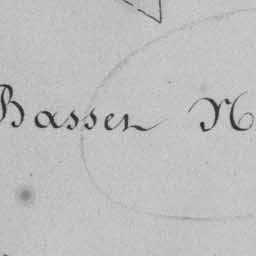 Bassen N